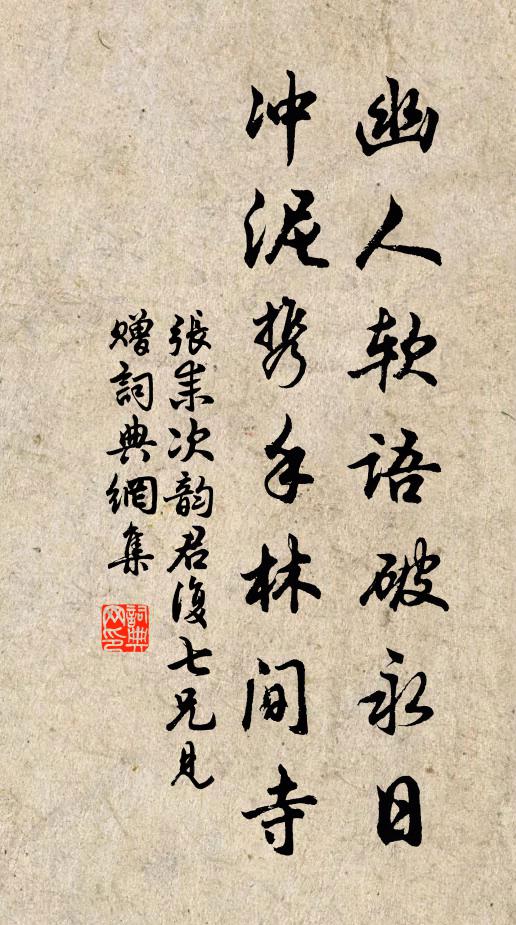 幽人软语破永日
冲泥携手林间寺
張耒次韵君復七兄見
贈詞典網集
詞典
网印